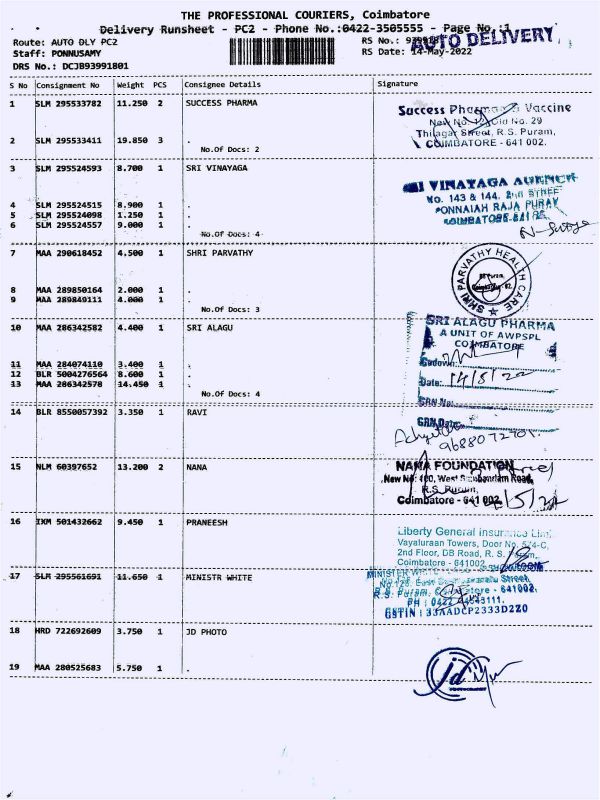 THE PROFESSIONAL COURIERS, Coimbatore
Delivery Runsheet - PC2 - Phone No.:0422-3505555 - Page No.:1
Route: AUTO DLY PC2 RS No.: AUTO DELIVERY
Staff: PONNUSAMY RS Date: 14-May-2022
DRS No.: DCJB93991801
S No Consignment No Weight PCS Consignee Details Signature
1 SLM 295533782 11.250 2 SUCCESS PHARMA
Success Pharma & Vaccine
New No. 12, Old No. 29
Thilagar Street, R.S. Puram,
COIMBATORE - 641 002.
2 SLM 295533411 19.850 3 .
No.Of Docs: 2
3 SLM 295524593 8.700 1 SRI VINAYAGA
SRI VINAYAGA AGENCY
No. 143 & 144, 2nd STREET
PONNAIAH RAJA PURAM
COIMBATORE
4 SLM 295524515 8.900 1 .
5 SLM 295524098 1.250 1 .
6 SLM 295524557 9.000 1 .
No.Of Docs: 4
7 MAA 290618452 4.500 1 SHRI PARVATHY
SHRI PARVATHY HEALTH CARE
8 MAA 289850164 2.000 1 .
9 MAA 289849111 4.000 1 .
No.Of Docs: 3
10 MAA 286342582 4.400 1 SRI ALAGU
SRI ALAGU PHARMA
A UNIT OF AWPSPL
COIMBATORE
Godown:
Date: 14/5/22
GRN No:
GRN Date:
11 MAA 284074110 3.400 1 .
12 BLR 5004276564 8.600 1 .
13 MAA 286342578 14.450 1 .
No.Of Docs: 4
14 BLR 8550057392 3.350 1 RAVI
15 NLM 60397652 13.200 2 NANA
NANA FOUNDATION
New No: 400, West Sambandam Road,
R.S. Puram,
Coimbatore - 641 002.
16 IXM 501432662 9.450 1 PRANEESH
Liberty General Insurance Limi
Vayaluraan Towers, Door No. 574-C,
2nd Floor, DB Road, R. S. Puram,
Coimbatore - 641002.
17 SLM 295561691 11.650 1 MINISTR WHITE
MINISTER WHITE
R.S. Puram, Coimbatore - 641002.
GSTIN : 33AADCP2333D2Z0
18 HRD 722692609 3.750 1 JD PHOTO
jd
19 MAA 280525683 5.750 1 .